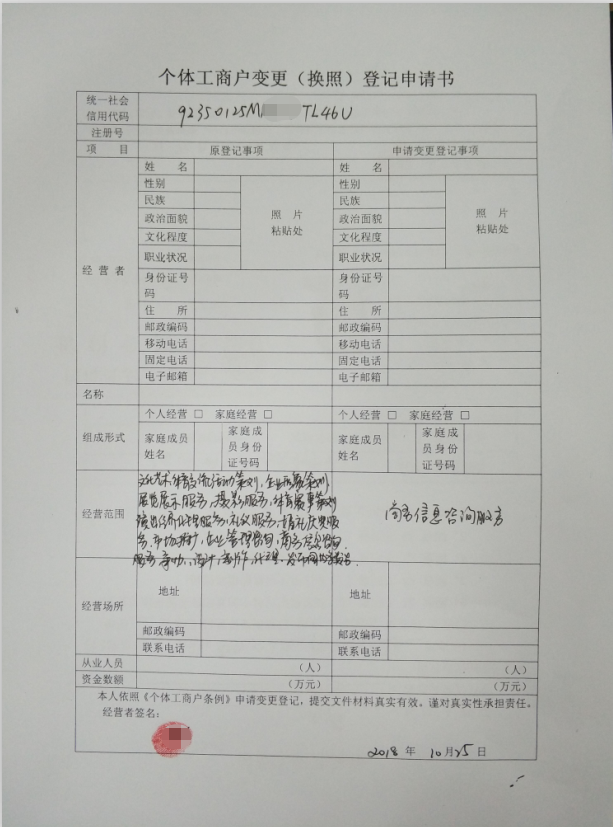 个体工商户变更（换照）登记申请书
统一社会
信用代码
92350125M TL46U
注册号
项 目 原登记事项 申请变更登记事项
经 营 者
姓 名 姓 名
性别 性别
民族 照 片 民族 照 片
政治面貌 粘贴处 政治面貌 粘贴处
文化程度 文化程度
职业状况 职业状况
身份证号 身份证号
码 码
住 所 住 所
邮政编码 邮政编码
移动电话 移动电话
固定电话 固定电话
电子邮箱 电子邮箱
名称
组成形式
个人经营 □ 家庭经营 □ 个人经营 □ 家庭经营 □
家庭成员 家庭成 家庭成员 家庭成
姓名 员身份 姓名 员身份
证号码 证号码
经营范围
文化艺术 体育交流活动策划，企业形象策划
展览展示服务，摄影服务，体育赛事策划
服务，礼仪服务，婚礼庆典服
务，市场推广，企业管理咨询，商务信息咨询
服务，设计，制作，代理，发布国内各类广告
商务信息咨询服务
经营场所
地址 地址
邮政编码 邮政编码
联系电话 联系电话
从业人员 （人） （人）
资金数额 （万元） （万元）
本人依照《个体工商户条例》申请变更登记，提交文件材料真实有效，谨对真实性承担责任。
经营者签名：
2018 年 10月25日